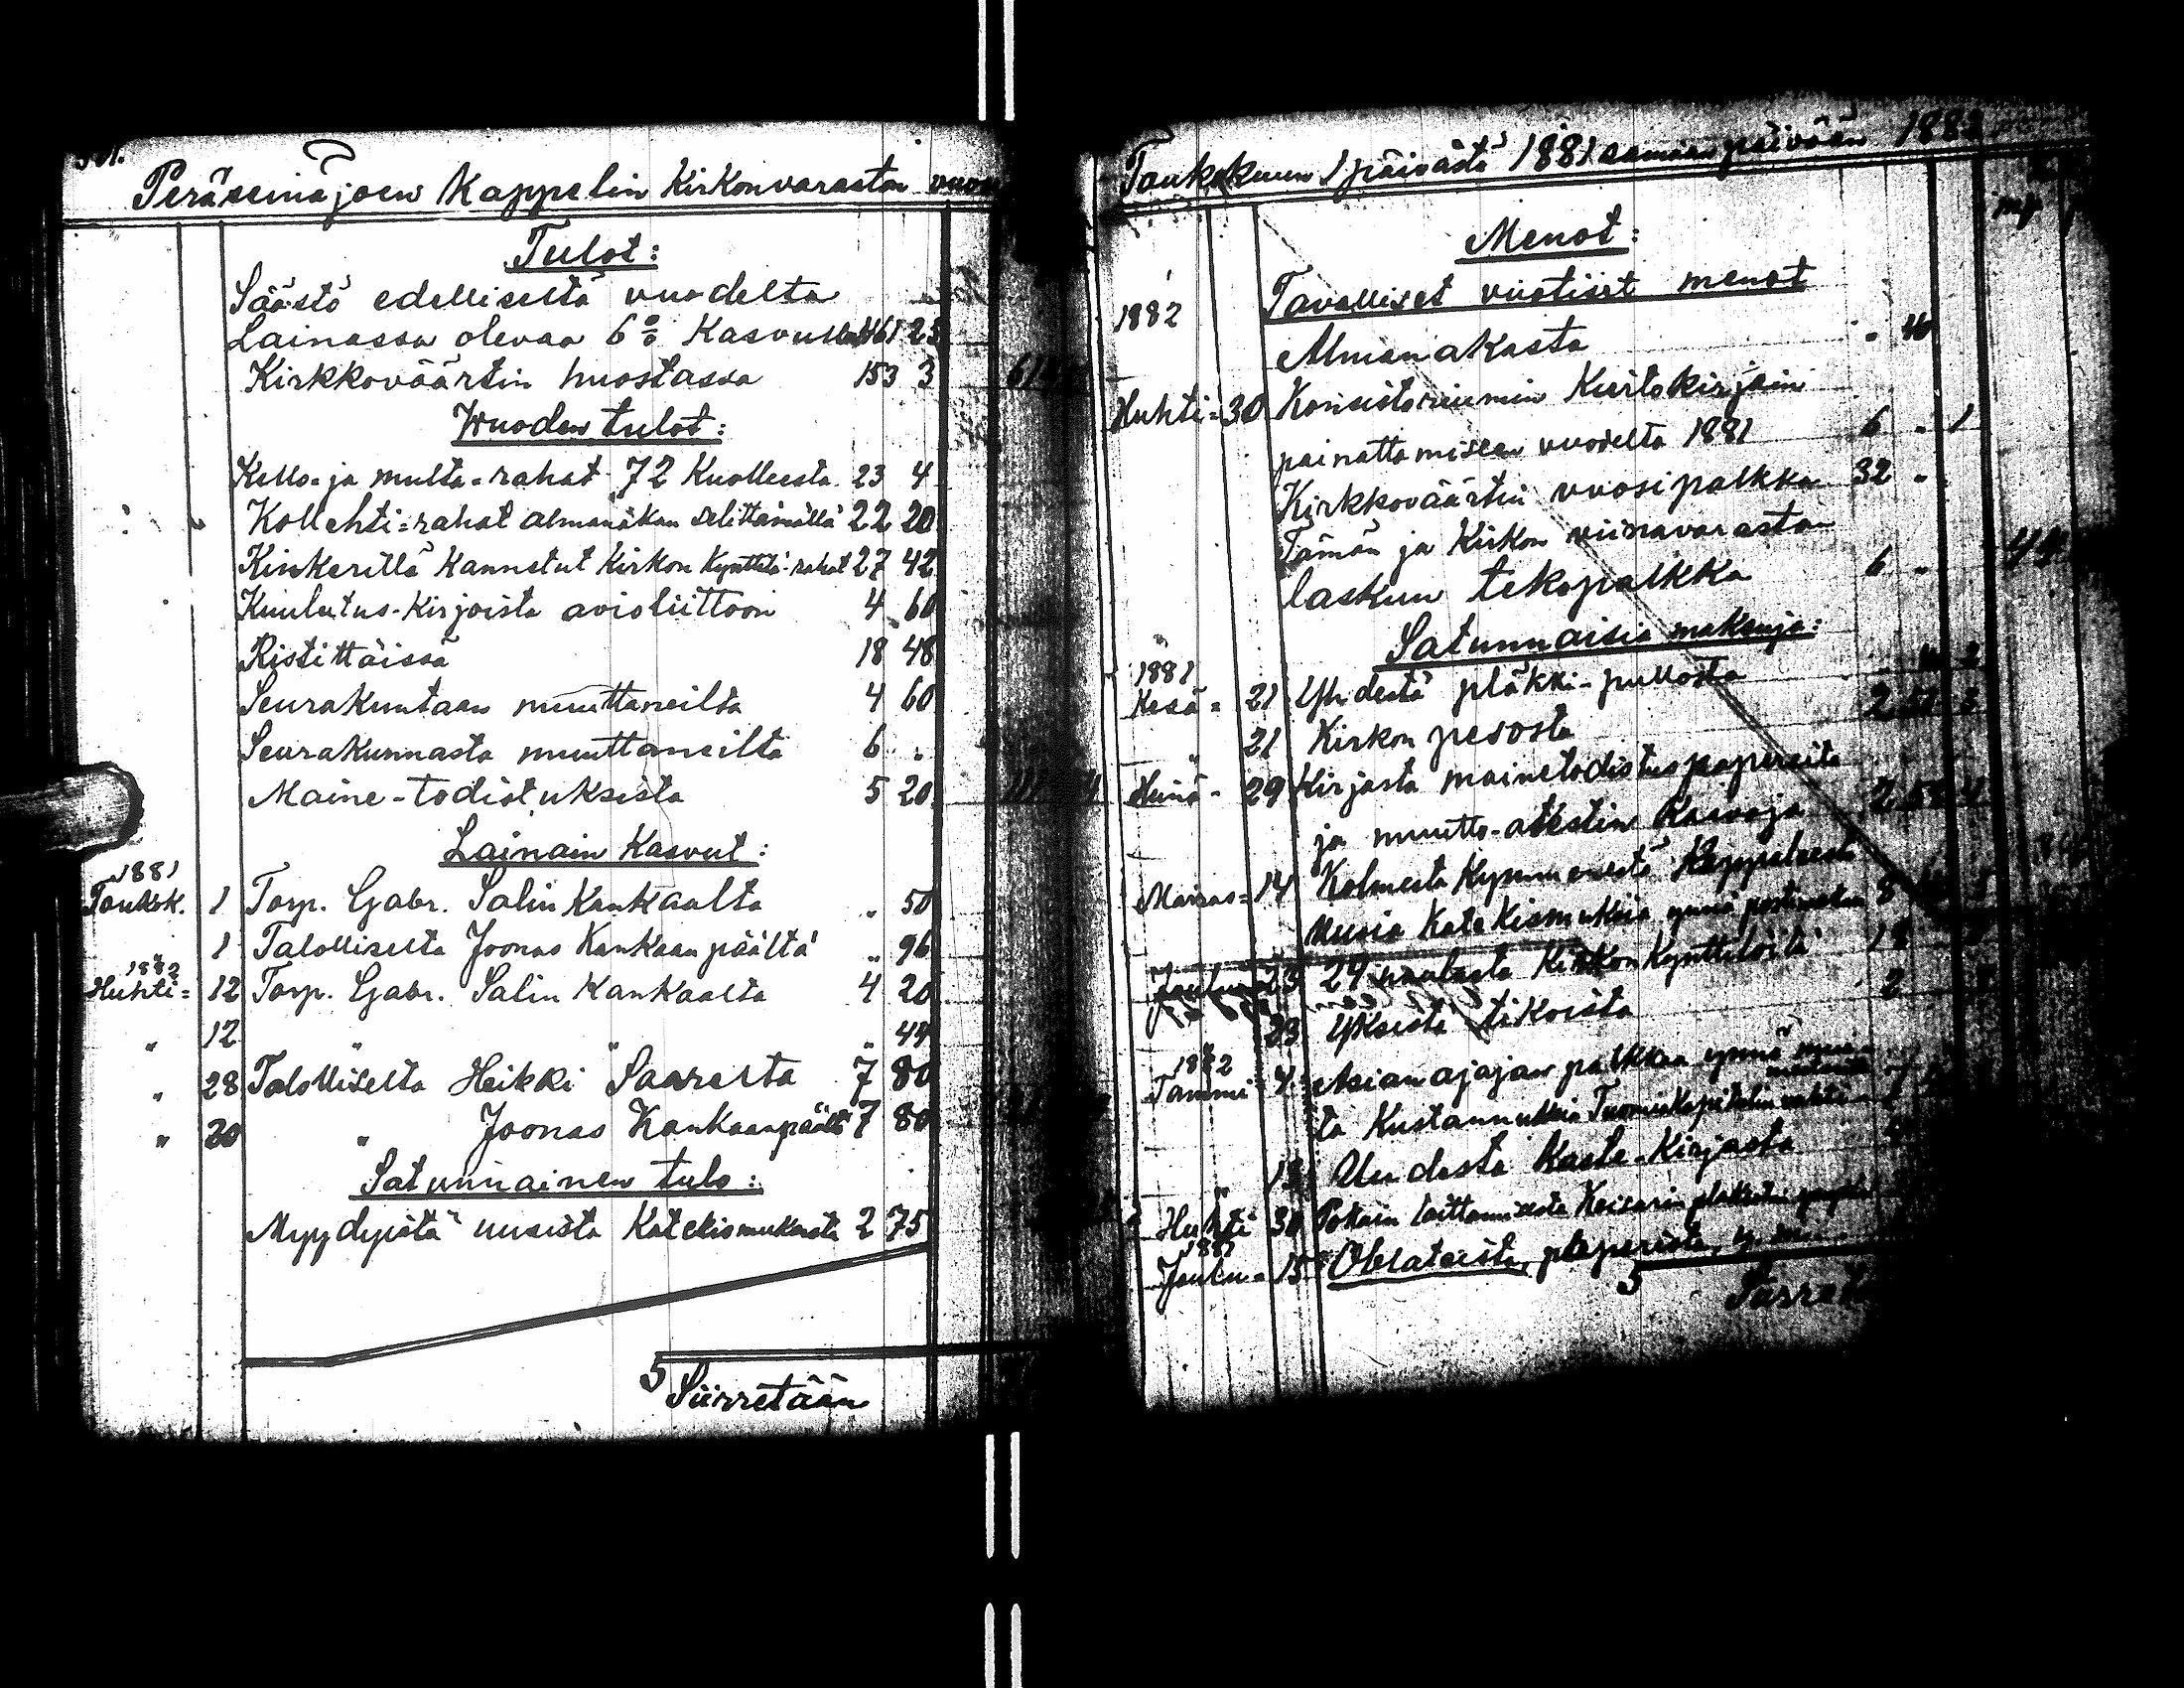 Peräseinäjoen Kappelin Kirkonvaraston
Tulot:
Säästö edelliseltä vuodelta
Lainassa olevaa 6% Kasvulla 461 23
Kirkkoväärtin huostassa 153 3
Wuoden tulot:
Kello- ja multa-rahat 72 Kuolleesta 23 4
Kollehti=rahat almanakan selittämällä 22 20
Kinkerillä Kannetut Kirkon Kynttilä-rahat 27 42
Kuulutus-Kirjoista avioliittoon 4 60
Ristittäissä 18 48
Seurakuntaan muuttaneilta 4 60
Seurakunnasta muuttaneilta 6 "
Maine-todistuksista 5 20
Lainain Kasvut:
1881
Toukok. 1 Torp. Gabr. Salin Kankaalta " 50
1 Talolliselta Joonas Kankaan päältä " 96
1882
Huhti= 12 Torp. Gabr. Salin Kankaalta 4 20
" 12 " " " 44
" 28 Talolliselta Heikki Saarelta 7 80
" 20 " Joonas Kankaanpäältä 7 80
Satunnainen tulo:
Myydyistä uusista Katekismuksista 2 75
5 Siirretään
Toukokuun 1 päivästä 1881 samaan päivään 1882
Menot:
Tavalliset vuotiset menot
1882
Almanakasta " 40
Huhti= 30 Konsistoriumin Kiertokirjain
painattamiseen vuodelta 1881 6 " 1
Kirkkoväärtin vuosipalkka 32 "
Tämän ja Kirkon viinavaraston
laskun tekopalkka 6 "
Satunnaisia maksuja:
1881
Kesä= 21 Yhdestä pläkki-pullosta
" 21 Kirkon pesosta 2
Heinä- 29 Kirjasta mainetodistuspapereita
ja muutto-atestin Kaavoja 2
Marras= 14 Kolmesta Kymmenestä Kappaleesta
Uusia Katekismuksia ynnä 8
Joulu 23 24 naulasta Kirkon Kynttilöitä 18
23 Yksistä tikoista 2
1882
Tammi 4 Asianajajan palkkaa ynnä
ta Kustannuksia Tuomiokapitulin
13 Uudesta Kaste-Kirjasta
Huhti 30 laittamisesta Keisarin
1881
Joulu= 15 Oblateista,
5